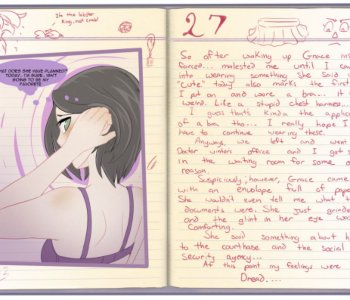 I'm the lobster
King, not crab!
WHAT DOES SHE HAVE PLANNED
TODAY. I'M SURE ISN'T
GOING TO BE MY
FAVORITE
27
So after waking up Grace
forced... molested me until I
into wearing something she said
Cute." today also marks the first
I put on and wore a bra...
weird. Like a stupid chest harness...
I guess that's kinda the
of a bra tho... I really hope I
have to continue wearing these.
Anyway we left and went
office and I get
in the waiting room for some
reason.
Suspiciously, however, Grace came
with an envelope full of
She wouldn't even tell me what
documents were. She just
and the glint in her eye
Comforting.
She said something about
to the courthouse and the social
security agency...
At this point my feelings were
Dread....